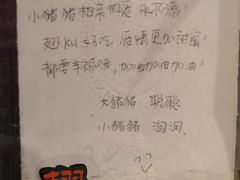 小猪猪相亲相爱 永不离!
翅KU好吃 感情更加甜蜜!
都要幸福哦,加油加油加油!
大猪猪 聪聪
小猪猪 淘淘
翅